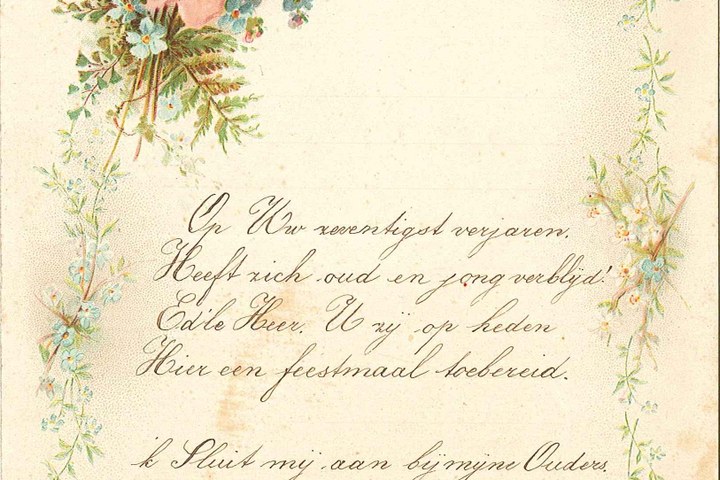 Op Uw zeventigst verjaren.
Heeft zich oud en jong verblijd!
Ed'le Heer. U zij op heden
Hier een feestmaal toebereid.
ik Sluit mij aan bij mijne Ouders.